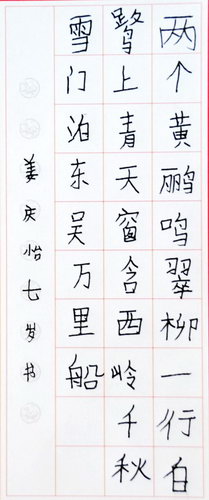 两个黄鹂鸣翠柳一行白
鹭上青天窗含西岭千秋
雪门泊东吴万里船
姜庆怡七岁书